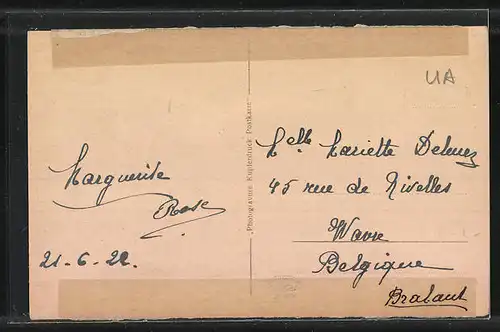 UA
Marguerite
Rose
21-6-22
Photogravure Kupferdruck Postkarte
Melle Mariette Delwez
45 rue de Nivelles
Wavre
Belgique
Brabant